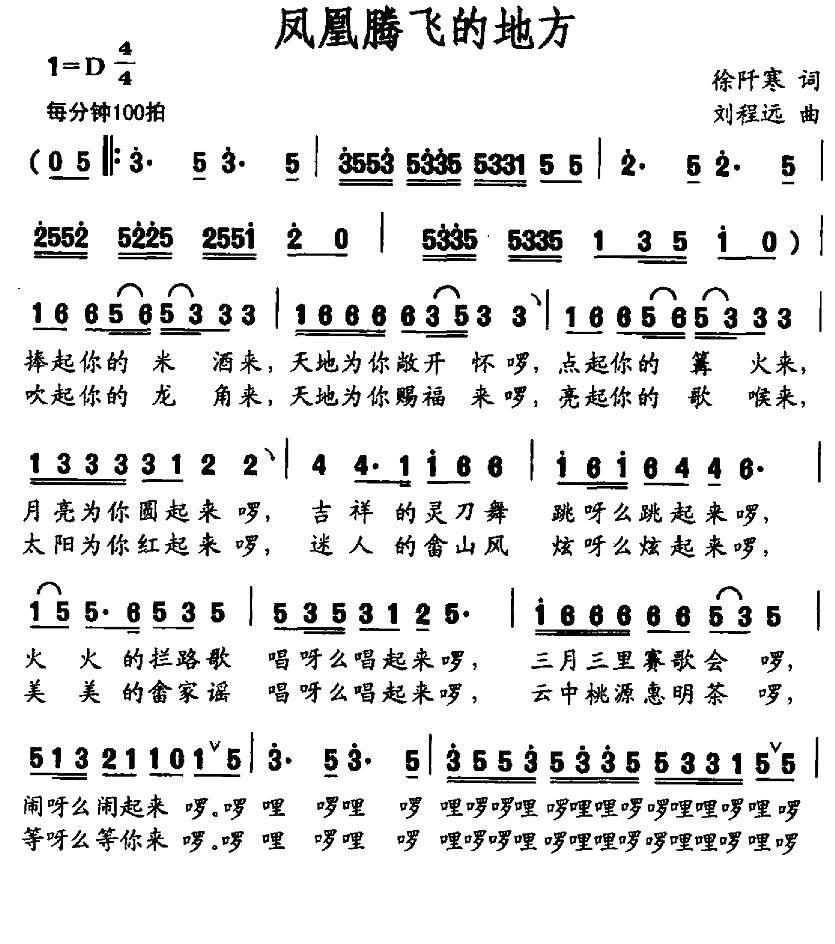 凤凰腾飞的地方
1=D 4/4
徐阡寒 词
每分钟100拍
刘程远 曲
(0 5 ‖: 3· 5 3· 5 | 3553 5335 5331 5 5 | 2· 5 2· 5 |
2552 5225 2551 2 0 | 5335 5335 1 3 5 1 0 )
1 6 6 5 6 5 3 3 3 | 1 6 6 6 6 3 5 3 3 | 1 6 6 5 6 5 3 3 3 |
捧起你的 米 酒来, 天地为你敞开 怀啰, 点起你的 篝 火来,
吹起你的 龙 角来, 天地为你赐福 来啰, 亮起你的 歌 喉来,
1 3 3 3 3 1 2 2 | 4 4· 1 1 6 6 | 1 6 1 6 4 4 6· |
月亮为你圆起来 啰, 吉 祥 的灵刀舞 跳呀么跳起来啰,
太阳为你红起来 啰, 迷 人 的畲山风 炫呀么炫起来啰,
1 5 5· 6 5 3 5 | 5 3 5 3 1 2 5· | 1 6 6 6 6 6 5 3 5 |
火 火 的拦路歌 唱呀么唱起来啰, 三月三里赛歌会 啰,
美 美 的畲家谣 唱呀么唱起来啰, 云中桃源惠明茶 啰,
5 1 3 2 1 1 0 1 ∨ 5 | 3· 5 3· 5 | 3 5 5 3 5 3 3 5 5 3 3 1 5 ∨ 5 |
闹呀么闹起来 啰。啰 哩 啰哩 啰 哩啰啰哩 啰哩哩啰啰哩哩啰哩 啰
等呀么等你来 啰。啰 哩 啰哩 啰 哩啰啰哩 啰哩哩啰啰哩哩啰哩 啰